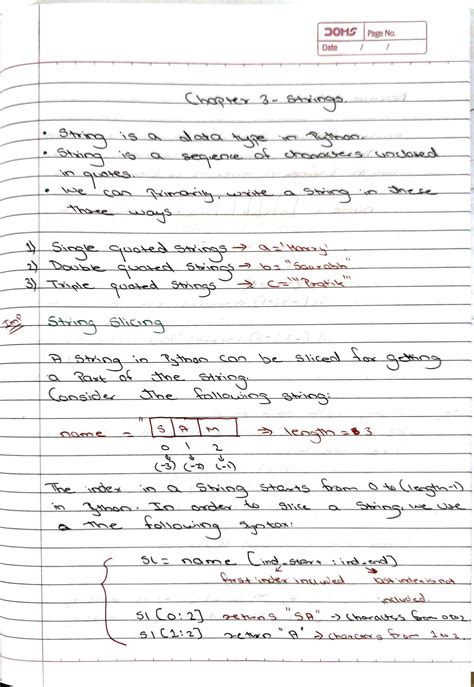 DOMS Page No.
Date / /
Chapter 3 - Strings.
• String is a data type in Python.
• String is a seqence of characters unclosed
in quotes.
• we can Primarily, write a string in these
three ways
1) Single quoted strings → a='Harry'
2) Double quoted strings → b= "Saurabh"
3) Triple quoted strings → c="""Pratik"""
Imp String Slicing
A string in Python can be sliced for getting
a Part of the string.
Consider The following string:
name = " S A M → length = 3
0 1 2
(-3) (-2) (-1)
The index in a string starts from 0 to (length-1)
in Python. In order to slice a string, we use
a the following syntax:
SL = name [ind_start : ind_end]
first index included last index is not
included.
Sl [0:2] returns "SA" → characters from 0 to 2
Sl [1:2] return "A" → characters from 1 to 2.